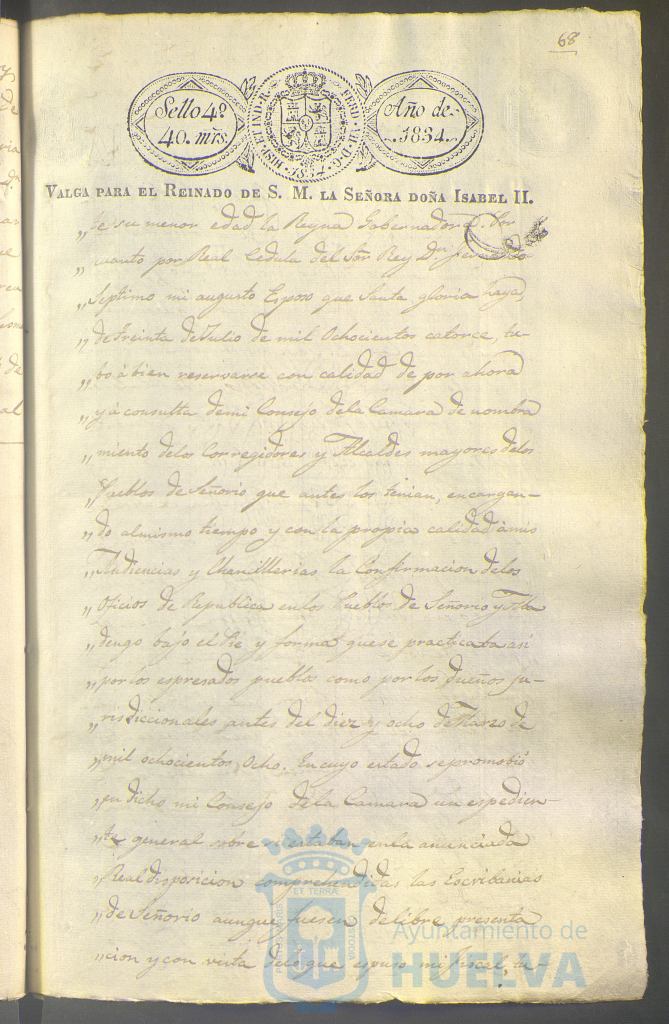 68
Sello 4º
40. mrs.
HISP. ET IND. R. FERD. VII D. G. 1834.
Año de
1834.
VALGA PARA EL REINADO DE S. M. LA SEÑORA DOÑA ISABEL II.
„ de su menor edad la Reyna Gobernadora. Por
„ cuanto por Real Cedula del Sor Rey Dn Fernando
„ Septimo mi augusto Esposo que Santa gloria haya,
„ de treinta de Julio de mil Ochocientos catorce, tu-
„ bo á bien reservarse con calidad de por ahora
„ y á consulta demi Consejo dela Camara de nombra
„ miento delos Corregidores y Alcaldes mayores delos
„ Pueblos de Señorio que antes los tenian, encargan-
„ do almismo tiempo y con la propia calidad ámis
„ Audiencias y Chancillerias la Confirmacion delos
„ Oficios de Republica enlos Pueblos de Señorio y Aba
„ dengo bajo el Pie y forma quese practicaba asi
„ por los espresados pueblos como por los dueños ju-
„ risdiccionales antes del diez y ocho de Marzo de
„ mil ochocientos, Ocho. En cuyo estado sepromobió
„ en dicho mi Consejo de la Camara un espedien-
„ te general sobre si estaban enla anunciada
„ Real disposicion comprehendidas las Escribanias
„ de Señorio aunque fuesen delibre presenta
„ cion y con vista delo que espuso mi fiscal, tu-
Ayuntamiento de
HUELVA